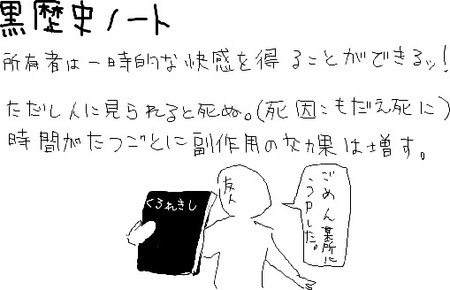 黒歴史ノート
所有者は一時的な快感を得ることができるッ!
ただし人に見られると死ぬ。(死因:もだえ死に)
時間がたつごとに副作用の効果は増す。
くろれきし
友人
ごめん
した。